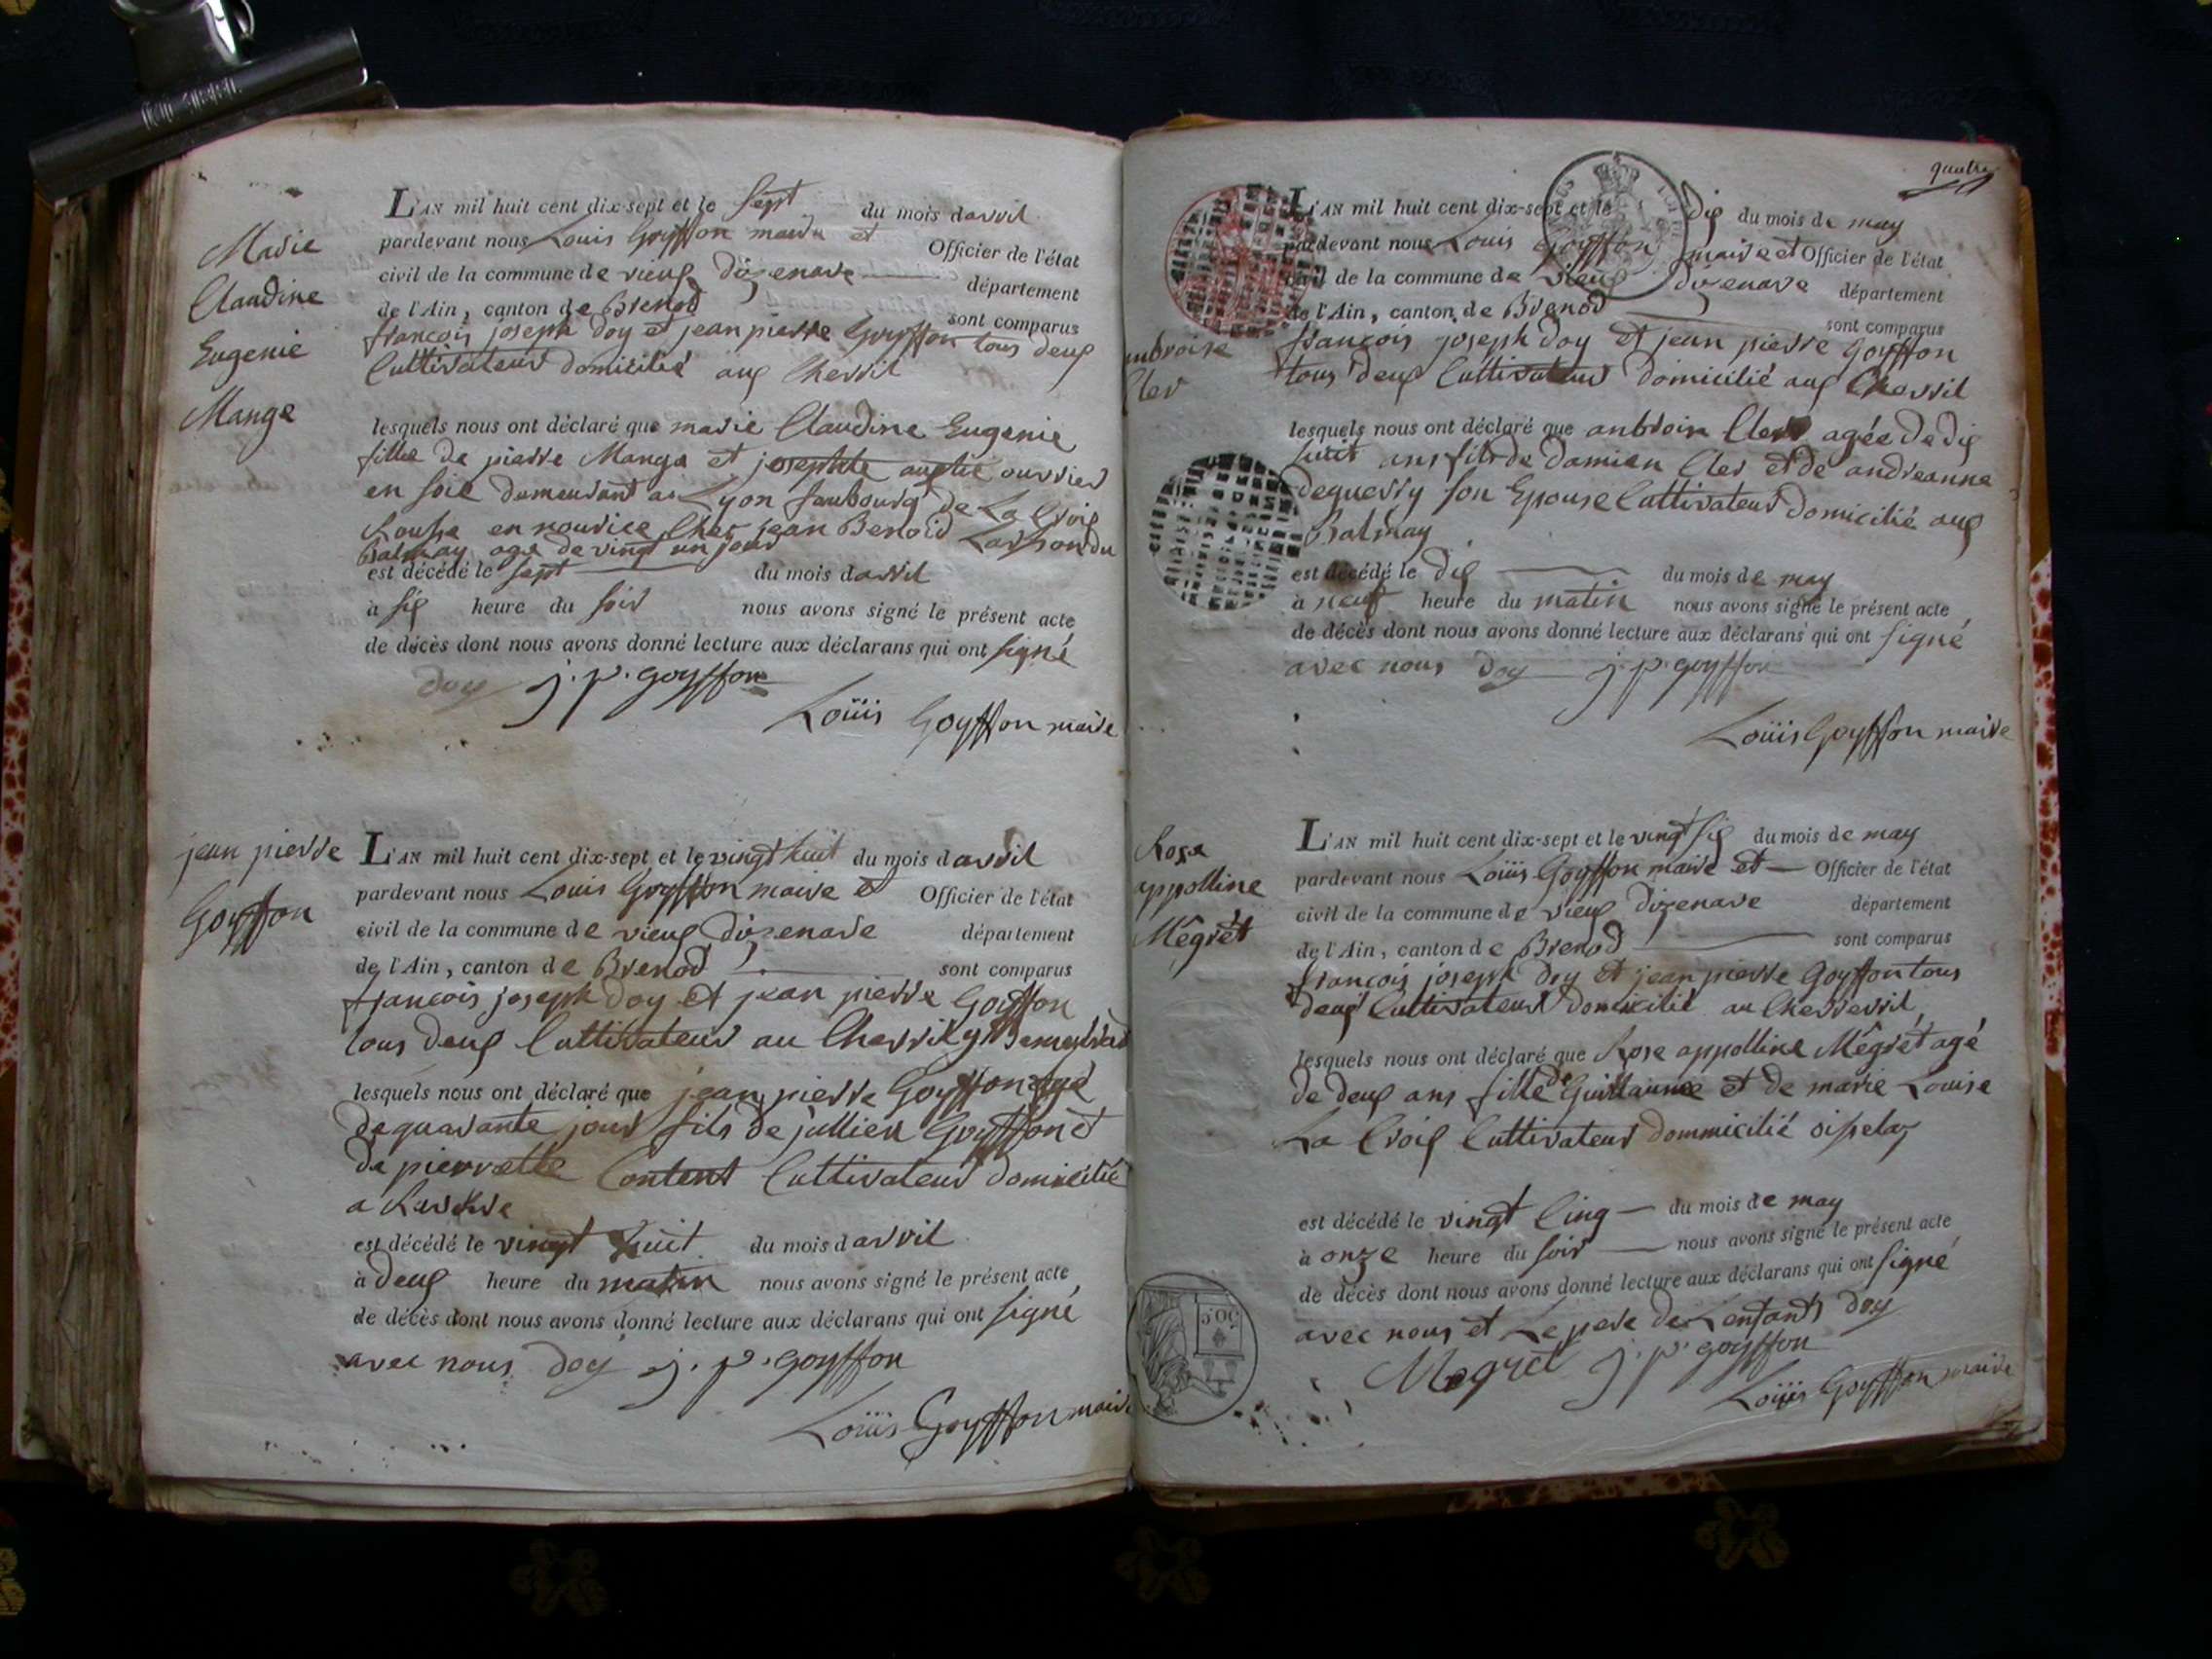 Marie
Claudine
Eugenie
Mange
L'AN mil huit cent dix-sept et le sept du mois davril
pardevant nous Louis Goyffon maire et Officier de l'état
civil de la commune de vieux dizenave département
de l'Ain, canton de Brenod sont comparus
francois joseph doy et jean pierre Goyffon tous deux
Cultivateur domicilié aux Chevril
lesquels nous ont déclaré que marie Claudine Eugenie
fille de pierre Mange et josephte ouvrier
en soie demeurant a Lyon faubourg de La Croix
Rousse en nourice Chez jean Benoid du
Balmay age de vingt un jour
est décédé le sept du mois davril
à six heure du soir nous avons signé le présent acte
de décès dont nous avons donné lecture aux déclarans qui ont signé
doy j. p. goyffon
Loüis Goyffon maire
jean pierre
Goyffon
L'AN mil huit cent dix-sept et le vingt huit du mois davril
pardevant nous Louis Goyffon maire et Officier de l'état
civil de la commune de vieux dizenave département
de l'Ain, canton de Brenod sont comparus
francois joseph doy et jean pierre Goyffon
tous deux Cultivateur au Chevril
lesquels nous ont déclaré que jean pierre Goyffon agé
de quarante jour fils de jullien Goyffon et
de pierrette Content Cultivateur domicilié
a
est décédé le vingt huit du mois davril
à deux heure du matin nous avons signé le présent acte
de décès dont nous avons donné lecture aux déclarans qui ont signé
avec nous doy j. p. goyffon
Loüis Goyffon maire
quatre
ambroise
Cler
L'AN mil huit cent dix-sept et le dix du mois de may
pardevant nous Louis Goyffon maire et Officier de l'état
civil de la commune de vieux dizenave département
de l'Ain, canton de Brenod sont comparus
francois joseph doy et jean pierre Goyffon
tous deux Cultivateur domicilié aux Chevril
lesquels nous ont déclaré que anbroin Cler agée de dix
huit ans fils de damien Cler et de andreanne
deguerry son Epouse Cultivateur domicilié aux
Balmay
est décédé le dix du mois de may
à neuf heure du matin nous avons signé le présent acte
de décès dont nous avons donné lecture aux déclarans qui ont signé
avec nous doy j. p. goyffon
Loüis Goyffon maire
Rose
appolline
Mégrèt
L'AN mil huit cent dix-sept et le vingt six du mois de may
pardevant nous Loüis Goyffon maire et Officier de l'état
civil de la commune de vieux dizenave département
de l'Ain, canton de Brenod sont comparus
francois joseph doy et jean pierre Goyffon tous
deux Cultivateur domicilié au Cheverril
lesquels nous ont déclaré que Rose appolline Mégrèt agé
de deux ans fille de Guillaume et de marie Louise
La Croix Cultivateur dommicilié oisselaz
est décédé le vingt Cinq du mois de may
à onze heure du soir nous avons signé le présent acte
de décès dont nous avons donné lecture aux déclarans qui ont signé
avec nous et Le pere de Lenfants doy
Megret j. p. goyffon
Loüis Goyffon maire
50 C